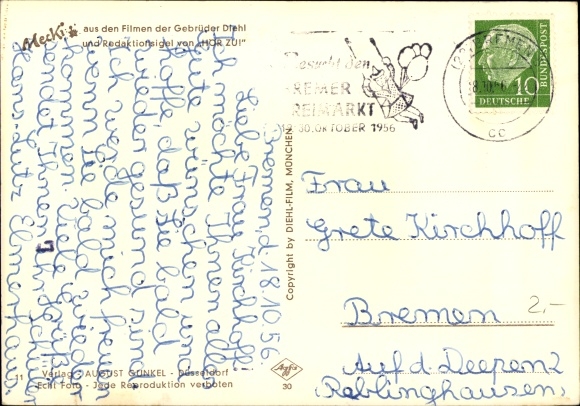 Mecki
aus den Filmen der Gebrüder Diehl
und Redaktionsigel von „HÖR ZU!"
Bremen, d. 18.10.56
Liebe Frau Kirchhoff!
Ich möchte Ihnen alles
Gute wünschen und
hoffe, daß Sie bald
wieder gesund sind.
Ich werde mich freuen
wenn Sie bald wieder
kommen. Viele Grüße
sendet Ihnen Ihr Schüler
Hans-Lutz
7
Copyright by DIEHL-FILM, MÜNCHEN
Verlag: AUGUST GUNKEL - Düsseldorf
Echt Foto - Jede Reproduktion verboten
11
Agfa
30
Besucht den
BREMER
FREIMARKT
30. OKTOBER 1956
BREMEN
cc
DEUTSCHE
BUNDESPOST
10
Frau
Grete Kirchhoff
Bremen
2,-
Auf d. Deepen 2
(Rablinghausen)